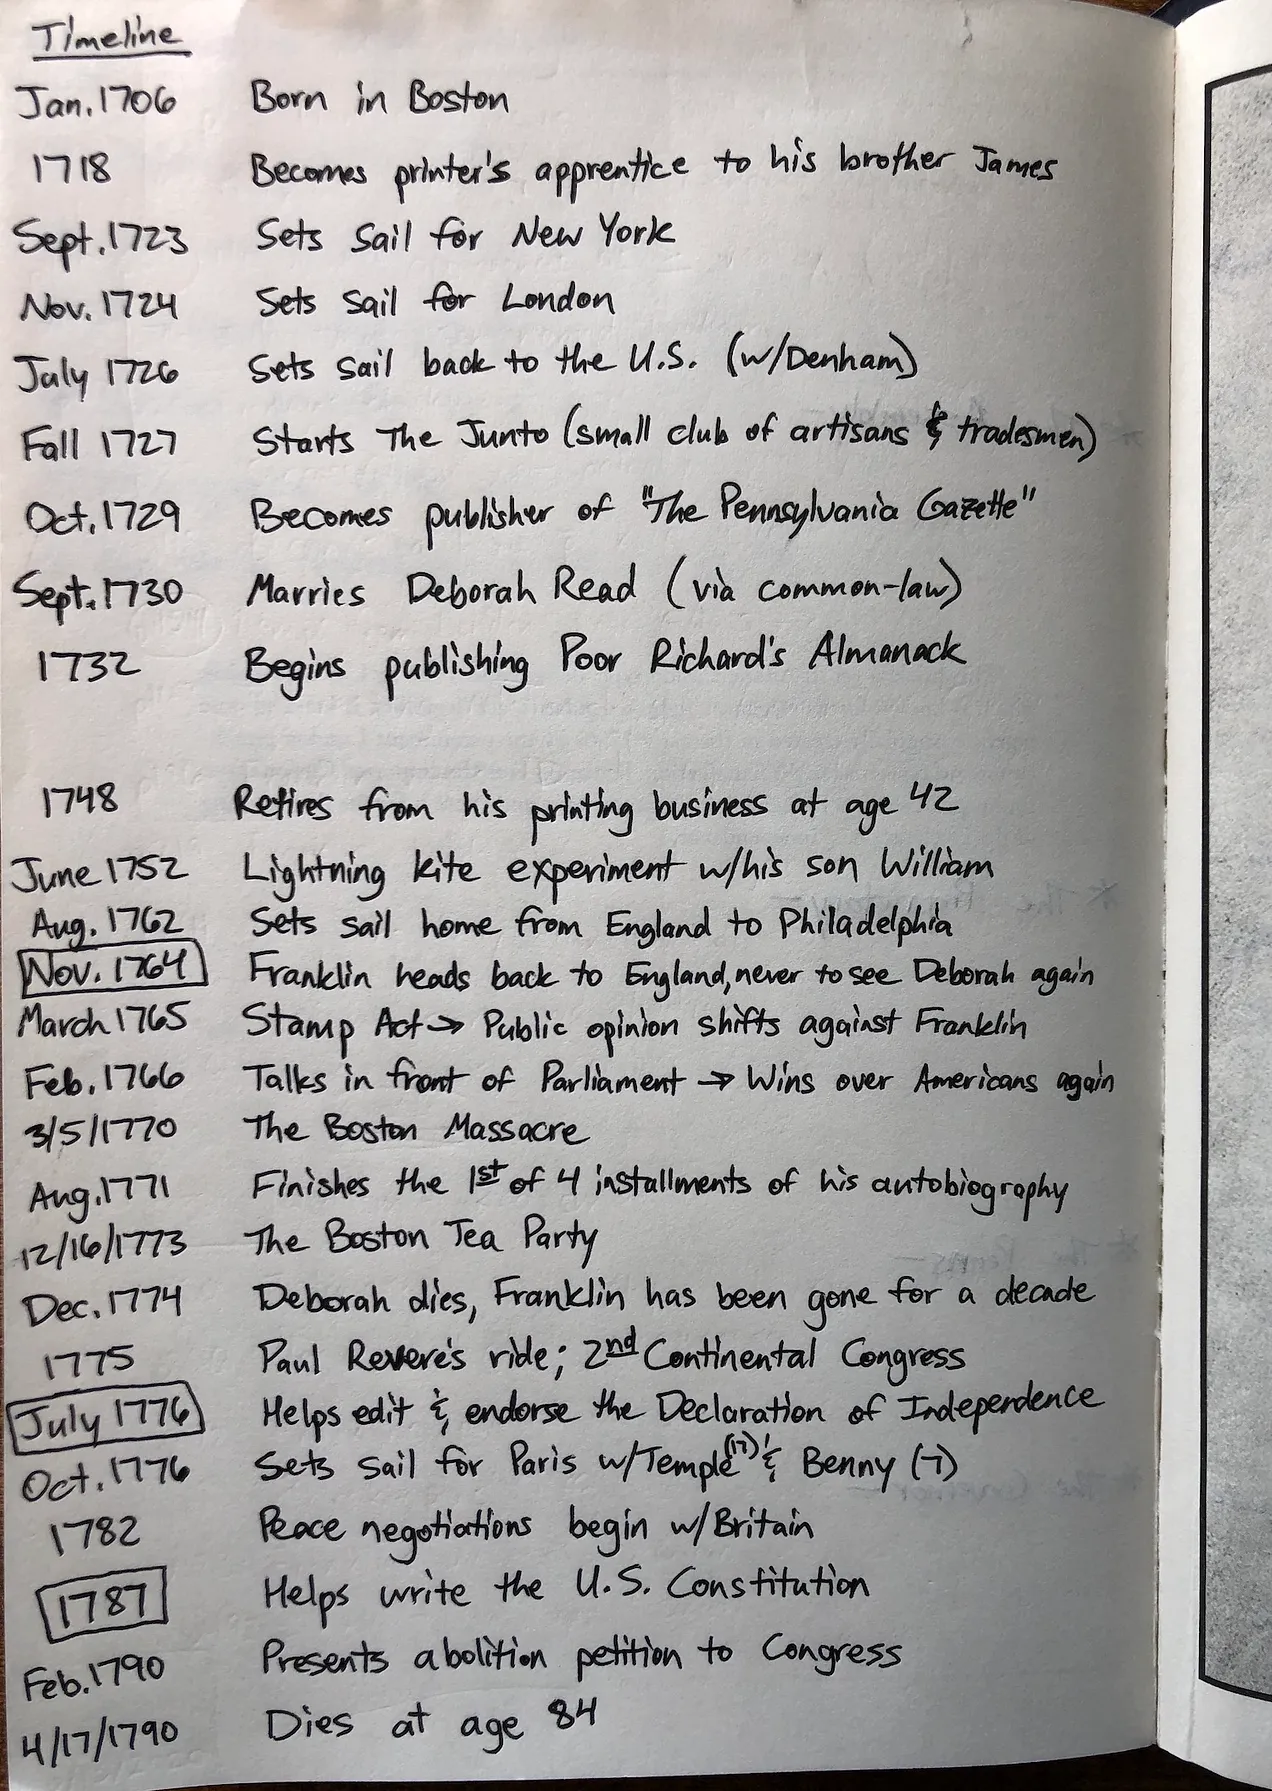 Timeline
Jan. 1706 Born in Boston
1718 Becomes printer's apprentice to his brother James
Sept. 1723 Sets sail for New York
Nov. 1724 Sets sail for London
July 1726 Sets sail back to the U.S. (w/Denham)
Fall 1727 Starts The Junto (small club of artisans & tradesmen)
Oct. 1729 Becomes publisher of "The Pennsylvania Gazette"
Sept. 1730 Marries Deborah Read (via common-law)
1732 Begins publishing Poor Richard's Almanack
1748 Retires from his printing business at age 42
June 1752 Lightning kite experiment w/his son William
Aug. 1762 Sets sail home from England to Philadelphia
Nov. 1764 Franklin heads back to England, never to see Deborah again
March 1765 Stamp Act → Public opinion shifts against Franklin
Feb. 1766 Talks in front of Parliament → Wins over Americans again
3/5/1770 The Boston Massacre
Aug. 1771 Finishes the 1st of 4 installments of his autobiography
12/16/1773 The Boston Tea Party
Dec. 1774 Deborah dies, Franklin has been gone for a decade
1775 Paul Revere's ride; 2nd Continental Congress
July 1776 Helps edit & endorse the Declaration of Independence
Oct. 1776 Sets sail for Paris w/Temple (17) & Benny (7)
1782 Peace negotiations begin w/Britain
1787 Helps write the U.S. Constitution
Feb. 1790 Presents abolition petition to Congress
4/17/1790 Dies at age 84